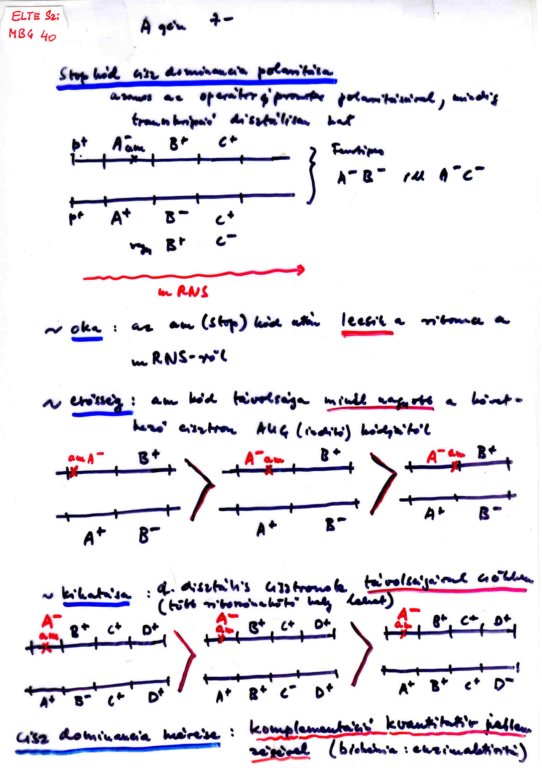 ELTE Szi
MBG 40
A gén 7-
Stop kód cisz dominancia polaritása
azonos az operátor q promoter polaritásával, mindig
transkripció disztálisan hat
p+ A- am B+ C+
Funkciós
A- B- ill A- C-
p+ A+ B- C+
vagy B+ C-
m RNS
~ oka : az am (stop) kód után leesik a riboszoma a
m RNS-ről
~ erősség : am kód távolsága minél nagyobb a követ-
kező cisztron AUG (indító) kódjától
am A- B+ > A- am B+ > A- am B+
A+ B- A+ B- A+ B-
~ kihatása : a disztális cisztronok távolságával csökken
(több riboszomakötő hely lehet)
A- A- A-
am B+ C+ D+ > am B+ C+ D+ > am B+ C+ D+
A+ B- C+ D+ A+ B+ C- D+ A+ B+ C+ D-
cisz dominancia mérése : komplementáció kvantitatív jellem-
zésével (biokémia : enzimaktivitás)